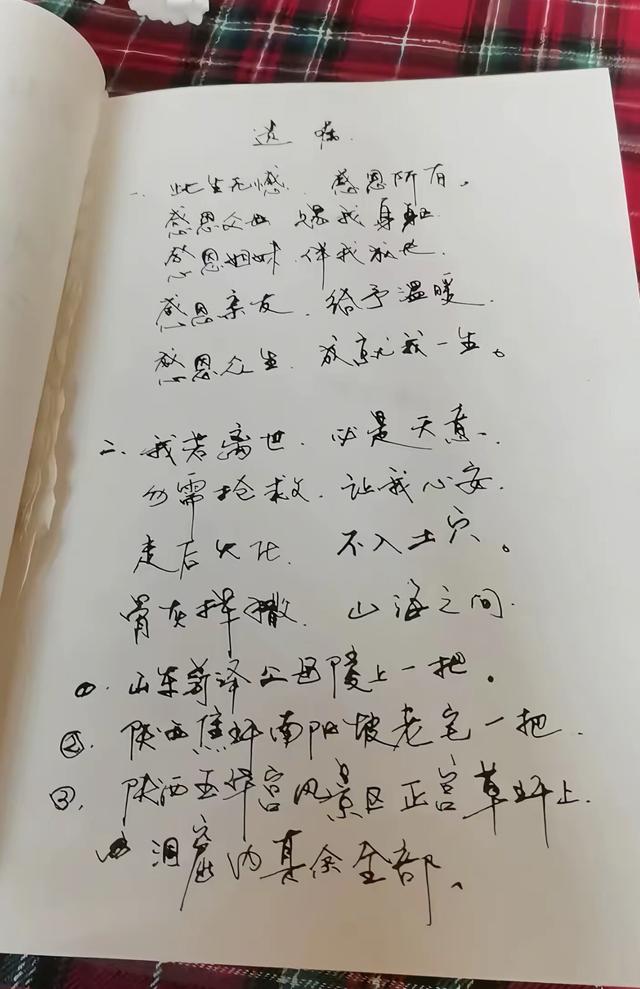 遗嘱
一、此生无憾 感恩所有。
感恩父母 赐我身躯
感恩姐妹 伴我
感恩亲友、给予温暖.
感恩众生 成就我一生。
二、我若离世 必是天意、
勿需抢救、让我心安、
走后火化 不入土穴。
骨灰撒 山海之间.
①、山东菏泽父母陵上一把。
②、陕西焦坪南阳坡老宅一把.
③、陕西玉华宫风景区正宫草坪上.
洞窟内其余全部、